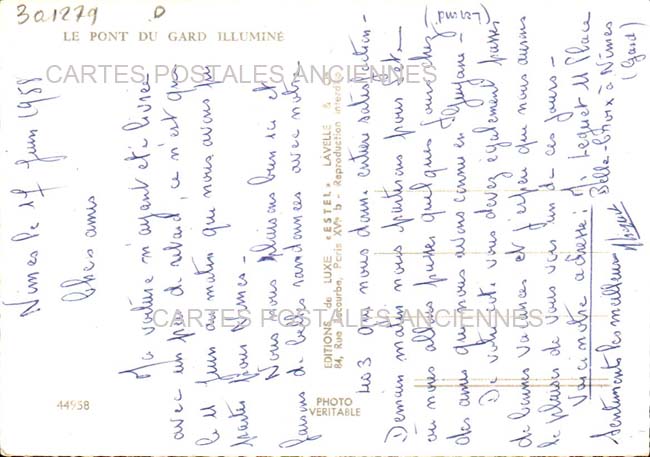 301279 D
LE PONT DU GARD ILLUMINÉ
CARTES POSTALES ANCIENNES
Nîmes le 17 Juin 1958
Chers amis
Ma voiture m'ayant été livrée
avec un peu de retard, ce n'est que
le 11 Juin au matin que nous avons pu
partir pour Nîmes -
Nous nous plaisons bien ici et
faisons de belles randonnées avec notre
403 qui nous donne entière satisfaction -
Demain matin nous partirons pour Sète
où nous allons passer quelques jours chez
des amis que nous avons connu en Guyane -
De votre côté, vous devez également passer
de bonnes vacances et j'espère que nous aurons
le plaisir de vous voir un de ces jours -
Voici notre adresse: M. Leguet 11 Place
Belle-Croix à Nîmes
(Gard)
Sentiments les meilleurs
EDITIONS de LUXE "ESTEL" LAVELLE &
84, Rue Lecourbe, Paris XVe - Reproduction interdite
CARTES POSTALES ANCIENNES
44958
PHOTO
VERITABLE